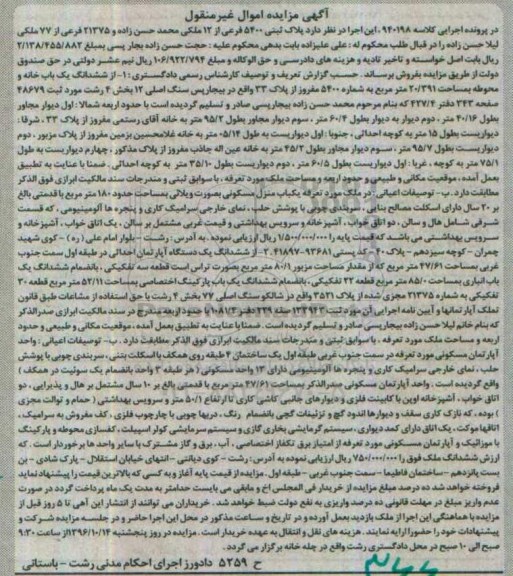 آگهی مزایده اموال غیرمنقول
در پرونده اجرایی کلاسه ۹۴۰۱۹۸، این اجرا در نظر دارد پلاک ثبتی ۵۴۰۰ فرعی از ۱۲ ملکی محمد حسن زاده و ۲۱۳۷۵ فرعی از ۷۷ ملکی
لیلا حسن زاده را در قبال طلب محکوم له : علی علیزاده بابت بدهی محکوم علیه : حجت حسن زاده بجار پسی بمبلغ ۲/۱۳۸/۴۵۵/۸۸۲
ریال بابت اصل خواسته و تاخیر تادیه و هزینه های دادرسی و حق الوکاله و مبلغ ۱۰۶/۹۲۲/۷۹۴ ریال نیم عشر دولتی در حق صندوق
دولت از طریق مزایده بفروش برساند. حسب گزارش تعریف و توصیف کارشناس رسمی دادگستری : ۱- از ششدانگ یک باب خانه و
محوطه بمساحت ۲۰/۳۹۱ متر مربع به شماره ۵۴۰۰ مفروز از پلاک ۳۳ واقع در بیجارپس سنگ اصلی ۱۲ بخش ۴ رشت مورد ثبت ۴۸۶۷۹
صفحه ۳۴۳ دفتر ۴۲۷/۴ که بنام مرحوم محمد حسن زاده بیجارپسی صادر و تسلیم گردیده است با حدود اربعه شمالا : اول دیوار مجاور
بطول ۴۰/۱۶ متر، دوم دیوار به دیوار بطول ۶۰/۴ متر، سوم دیوار مجاور بطول ۹۵/۲ متر به خانه آقای رستمی مفروز از پلاک ۳۳، شرقا :
دیواریست بطول ۱۵ متر به کوچه احداثی، جنوبا : اول دیواریست به طول ۰۵/۱۴ متر به خانه غلامحسین بزمین مفروز از پلاک مزبور، دوم
دیواریست بطول ۹۵/۷ متر، سوم دیوار مجاور بطول ۴۵/۳ متر به خانه عین اله جاذب مفروز از پلاک مذکور، چهارم دیواریست به طول
۷۵/۱ متر به کوچه، غربا : اول دیواریست بطول ۶۰/۵ متر، دوم دیواریست بطول ۳۵/۱۰ متر به کوچه احداثی. ضمنا با عنایت به تطبیق
بعمل آمده، موقعیت مکانی و طبیعی و حدود اربعه و مساحت ملک مورد تعرفه، با سوابق ثبتی و مندرجات سند مالکیت ابرازی فوق الذکر
مطابقت دارد. ب- توصیفات اعیانی : در ملک مورد تعرفه یکباب منزل مسکونی بصورت ویلائی بمساحت حدود ۱۸۰ متر مربع با قدمتی بالغ
بر ۲۰ سال دارای اسکلت مصالح بنایی، سربندی چوبی با پوشش حلب، نمای خارجی سرامیک کاری و پنجره ها آلومینیومی، که قسمت
شرقی شامل هال و سالن، دو اتاق خواب، آشپزخانه و سرویس بهداشتی و قسمت غربی مشتمل بر سالن، یک اتاق خواب، آشپزخانه و
سرویس بهداشتی می باشد که قیمت پایه را ۱/۵۰۰/۰۰۰/۰۰۰ ریال ارزیابی نموده. به آدرس : رشت – بلوار امام علی (ره) – کوی شهید
چمران – کوچه سیزدهم – پلاک ۴۰ – کد پستی ۹۳۶۸۱-۴۱۸۹۷. ۲- از ششدانگ یک دستگاه آپارتمان احداثی در طبقه اول سمت جنوب
غربی بمساحت ۴۷/۶۱ متر مربع که از مقدار مساحت مزبور ۸۰/۱ متر مربع بصورت تراس است قطعه سه تفکیکی، بانضمام ششدانگ یک
باب انباری بمساحت ۸۵/۰ متر مربع قطعه ۲۲ تفکیکی، بانضمام ششدانگ یک باب پارکینگ اختصاصی بمساحت ۵۲/۱۱ متر مربع قطعه ۳۰
تفکیکی به شماره ۲۱۳۷۵ مجزی شده از پلاک ۳۵۲۱ واقع در شالکو سنگ اصلی ۷۷ بخش ۴ رشت با حق استفاده از مشاعات طبق قانون
تملک آپارتمانها و آیین نامه اجرایی آن مورد ثبت ۱۳۴۹۴۳ صفحه ۲۳۹ دفتر ۷۱۰۸۷۲ حدود اربعه مندرج در سند مالکیت ابرازی صدرالذکر
که بنام خانم لیلا حسن زاده بیجارپسی صادر و تسلیم گردیده است. ضمنا با عنایت به تطبیق بعمل آمده، موقعیت مکانی و طبیعی و حدود
اربعه و مساحت ملک مورد تعرفه، با سوابق ثبتی و مندرجات سند مالکیت ابرازی فوق الذکر مطابقت دارد. ب- توصیفات اعیانی : واحد
آپارتمان مسکونی مورد تعرفه در سمت جنوب غربی طبقه اول یک ساختمان ۴ طبقه روی همکف با اسکلت بتنی، سربندی چوبی با پوشش
حلب، نمای خارجی سرامیک کاری و پنجره ها آلومینیومی دارای ۱۳ واحد مسکونی (هر طبقه ۳ واحد بانضمام یک سوئیت در همکف)
واقع گردیده است. واحد آپارتمان مسکونی صدرالذکر بمساحت ۴۷/۶۱ متر مربع با قدمتی بالغ بر ۱۰ سال مشتمل بر هال و پذیرایی، دو
اتاق خواب، آشپزخانه اوپن با کابینت فلزی و دیوارهای جانبی کاشی کاری تا ارتفاع ۵۰/۱ متر و سرویس بهداشتی (حمام و توالت مجزی
) بوده، که نازک کاری سقف و دیوارها اندود گچ و تزئینات گچی بانضمام رنگ، دربها چوبی با چارچوب فلزی، کف مفروش به سرامیک،
اتاقها موکت، یک اتاق دارای کمد دیواری، سیستم گرمایشی بخاری گازی و سیستم سرمایشی کولر اسپیلت، کفسازی محوطه و پارکینگ
با موزائیک و آپارتمان مسکونی مورد تعرفه از امتیاز برق تکفاز اختصاصی، آب، برق و گاز مشترک با سایر واحد ها برخوردار است. که
ارزش ششدانگ ملک فوق را ۷۵۰/۰۰۰/۰۰۰ ریال ارزیابی نموده به آدرس : رشت – کوی دیانتی – انتهای خیابان استقلال – پارک شادی – بن
بست پانزدهم – ساختمان فاطیما – سمت جنوب غربی – طبقه اول. مزایده از قیمت پایه آغاز و به کسی که بالاترین قیمت را پیشنهاد نماید
فروخته خواهد شد ده درصد مبلغ مزایده از خریدار فی المجلس اخذ و مابقی می بایست حداکثر به مدت یک ماه پرداخت گردد در صورت
عدم واریز مبلغ در مهلت قانونی ده درصد واریزی به نفع دولت ضبط خواهد شد. خریداران می توانند از انتشار این آگهی تا ۵ روز قبل از
مزایده با هماهنگی این اجرا از ملک بازدید بعمل آورده و در تاریخ و ساعت مذکور در محل این اجرا حاضر و در جلسه مزایده شرکت و
پیشنهادات خود را حضورا ارایه نمایند. هزینه های نقل و انتقال به عهده خریدار است. مزایده در روز پنجشنبه ۱۳۹۶/۱۰/۱۴ از ساعت ۹:۳۰
صبح الی ۱۰ صبح در محل دادگستری رشت واقع در چله خانه برگزار می گردد.
ح ۵۲۵۹ دادورز اجرای احکام مدنی رشت – باستانی